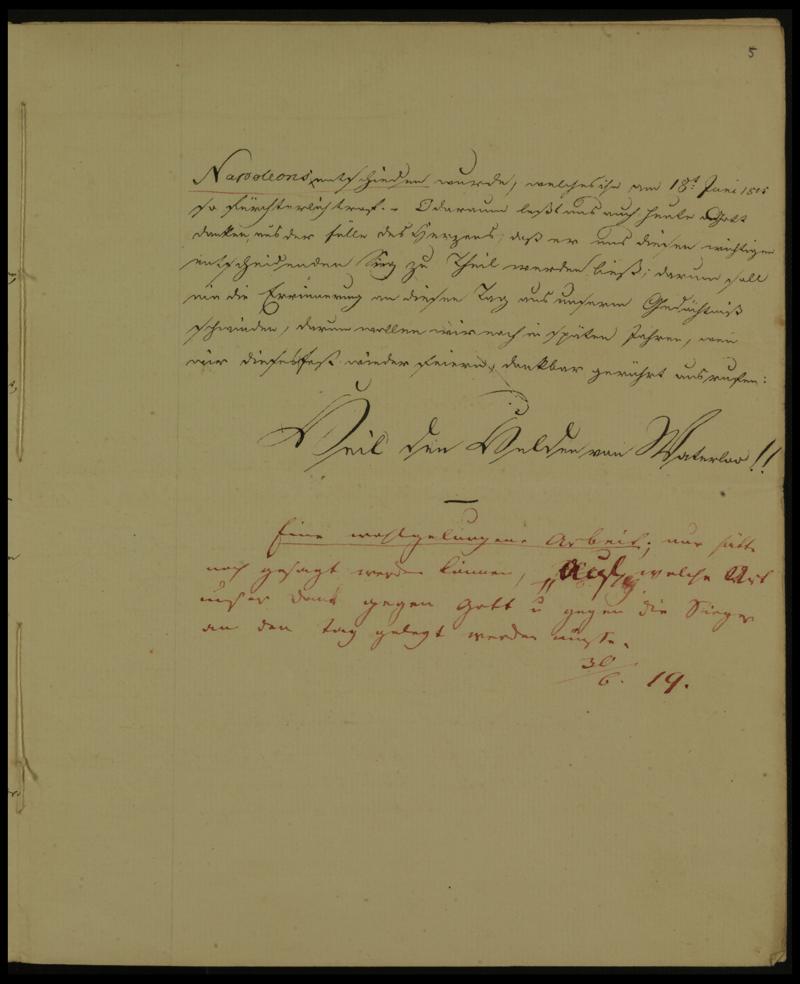 5
Napoleons entschieden wurde, welches ihn am 18t. Juni 1815
so fürchterlich traf. - O darum laßt uns auch heute Gott
danken, aus der Fülle des Herzens, daß er uns diesen wichtigen
entscheidenden Sieg zu Theil werden ließ; darum soll
nie die Errinnerung an diesen Tag aus unserm Gedächtniß
schwinden, darum wollen wir noch in späten Jahren, wen
wir dieses Fest wieder feiern, dankbar gerührt ausrufen:
Heil den Helden von Waterloo!!
Eine wohlgelungene Arbeit; nur hätte
noch gesagt werden können, „auf welche Art
unser Dank gegen Gott u gegen die Sieger
an den Tag gelegt werden müsse.
30/6. 19.